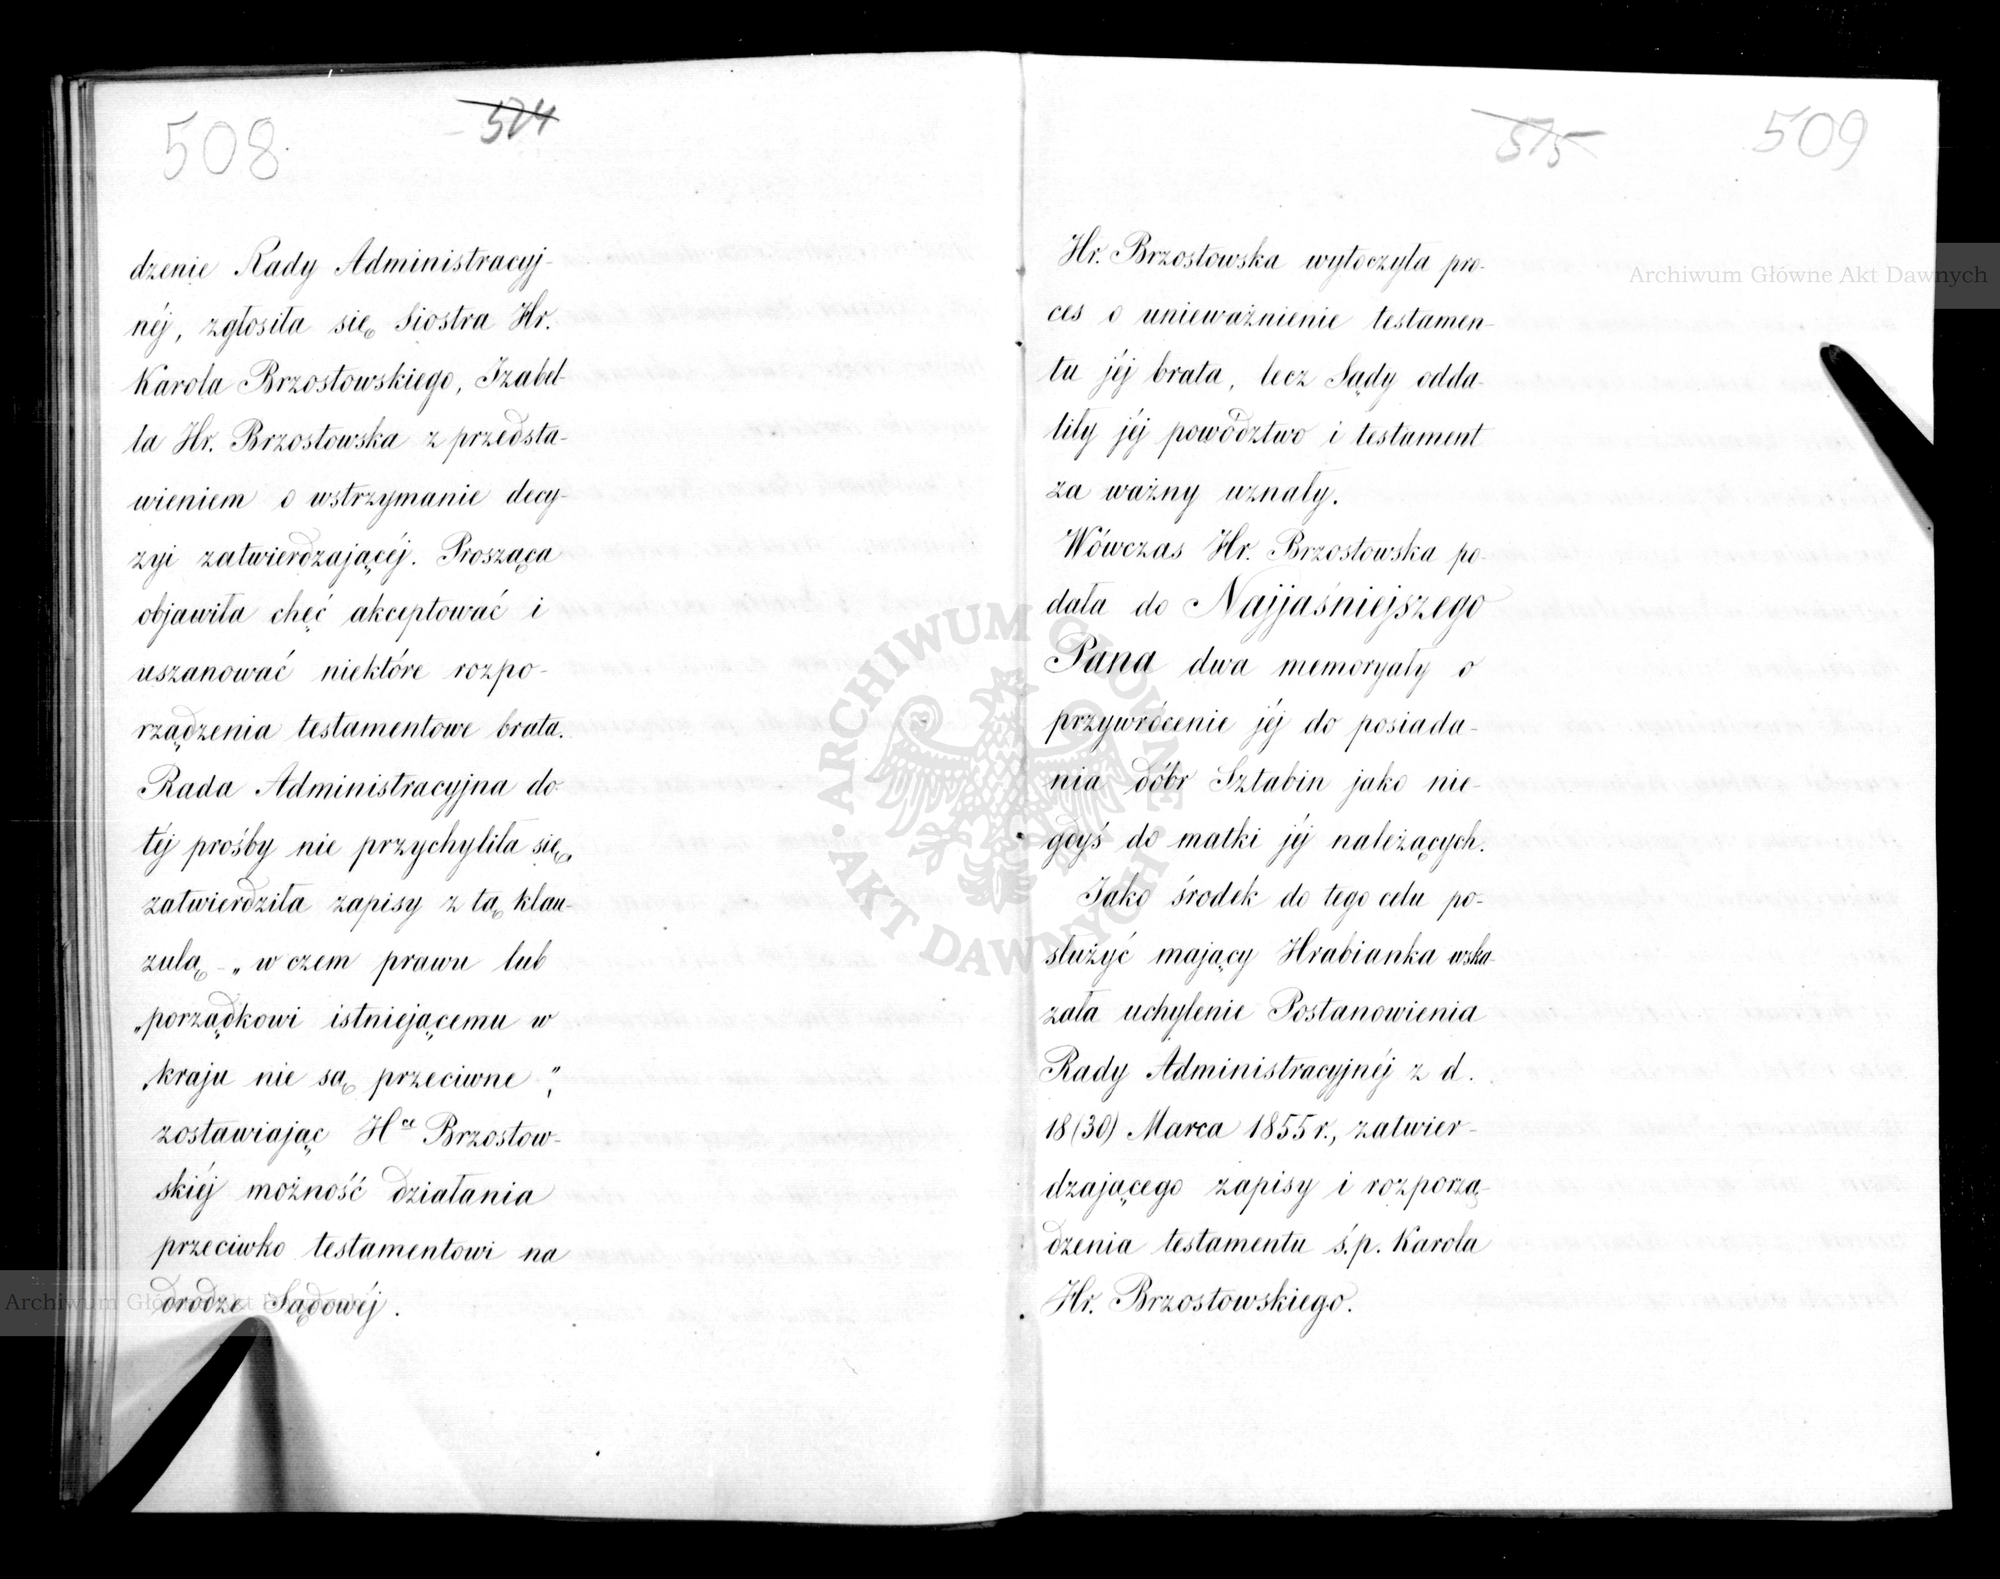 508
574
dzenie Rady Administracyj-
néj, zgłosiła się Siostra Hr.
Karola Brzostowskiego, Izabel-
la Hr. Brzostowska z przedsta-
wieniem o wstrzymanie decy-
zyi zatwierdzającéj. Prosząca
objawiła chęć akceptować i
uszanować niektóre rozpo-
rządzenia testamentowe brata.
Rada Administracyjna do
téj prośby nie przychyliła się,
zatwierdziła zapisy z tą klau-
zulą - „w czem prawu lub
„porządkowi istniejącemu w
„kraju nie są przeciwne”,
zostawiając Hce Brzostow-
skiéj możność działania
przeciwko testamentowi na
drodze Sądowéj.
515
509
Hr. Brzostowska wytoczyła pro-
ces o unieważnienie testamen-
tu jéj brata, lecz Sądy odda-
liły jéj powództwo i testament
za ważny uznały.
Wówczas Hr. Brzostowska po-
dała do Najjaśniejszego
Pana dwa memoryały o
przywrócenie jéj do posiada-
nia dóbr Sztabin jako nie-
gdyś do matki jéj należących.
Jako środek do tego celu po-
służyć mający Hrabianka wska-
zała uchylenie Postanowienia
Rady Administracyjnéj z d.
18 (30) Marca 1855 r., zatwier-
dzającego zapisy i rozporzą-
dzenia testamentu ś.p. Karola
Hr. Brzostowskiego.
Archiwum Główne Akt Dawnych
ARCHIWUM GŁÓWNE
AKT DAWNYCH
Archiwum Główne Akt Dawnych